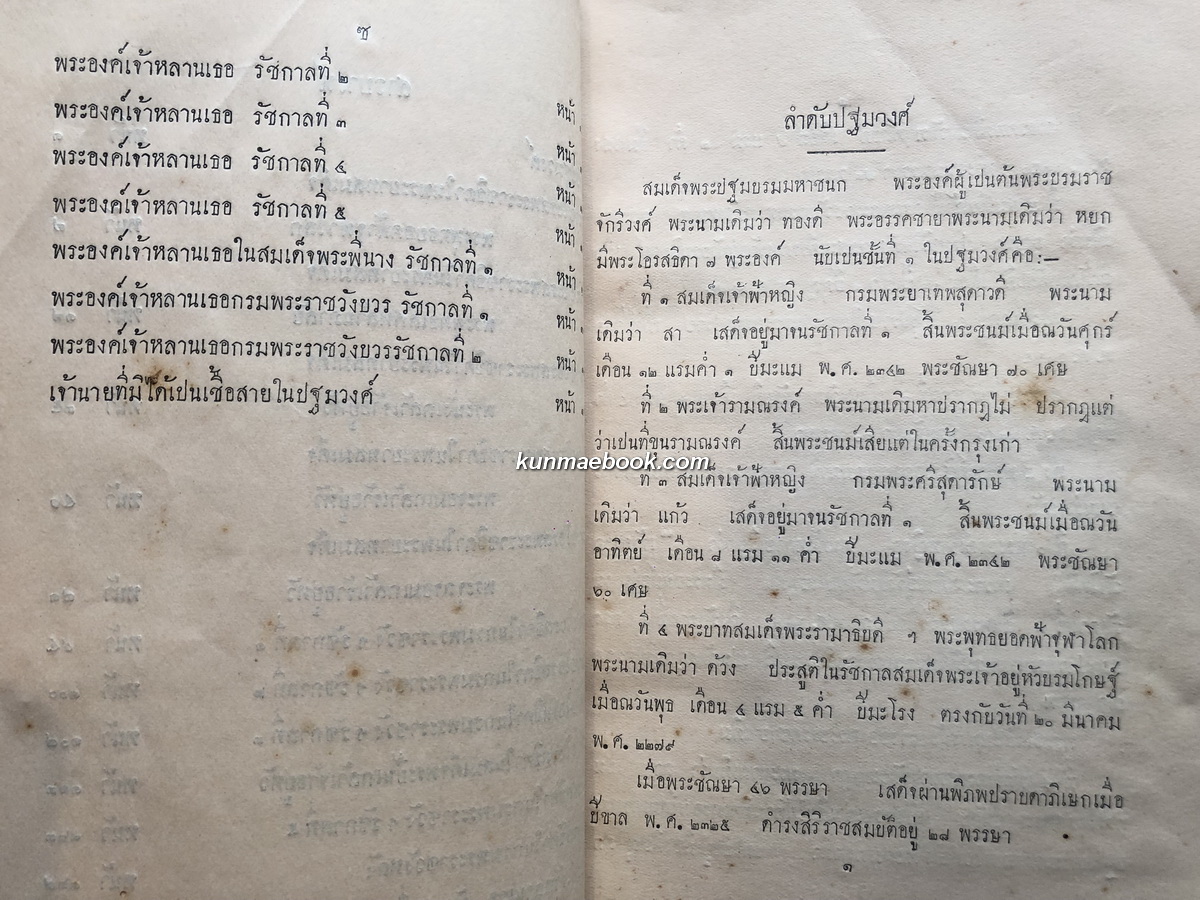 ซ
พระองค์เจ้าหลานเธอ รัชกาลที่ ๒
พระองค์เจ้าหลานเธอ รัชกาลที่ ๓ หน้า
พระองค์เจ้าหลานเธอ รัชกาลที่ ๔ หน้า
พระองค์เจ้าหลานเธอ รัชกาลที่ ๕ หน้า
พระองค์เจ้าหลานเธอในสมเด็จพระพี่นาง รัชกาลที่ ๑ หน้า
พระองค์เจ้าหลานเธอกรมพระราชวังบวร รัชกาลที่ ๑ หน้า
พระองค์เจ้าหลานเธอกรมพระราชวังบวรรัชกาลที่ ๒ หน้า
เจ้านายที่มิได้เปนเชื้อสายในปฐมวงศ์ หน้า
ลำดับปฐมวงศ์
สมเด็จพระปฐมบรมมหาชนก พระองค์ผู้เปนต้นพระบรมราช
จักรีวงศ์ พระนามเดิมว่า ทองดี พระอรรคชายาพระนามเดิมว่า หยก
มีพระโอรสธิดา ๗ พระองค์ นับเปนชั้นที่ ๑ ในปฐมวงศ์คือ:—
ที่ ๑ สมเด็จเจ้าฟ้าหญิง กรมพระยาเทพสุดาวดี พระนาม
เดิมว่า สา เสด็จอยู่มาจนรัชกาลที่ ๑ สิ้นพระชนม์เมื่อณวันศุกร์
เดือน ๑๒ แรมค่ำ ๑ ปีมะแม พ.ศ. ๒๓๔๒ พระชัณษา ๗๐ เศษ
ที่ ๒ พระเจ้ารามณรงค์ พระนามเดิมหาปรากฎไม่ ปรากฎแต่
ว่าเปนที่ขุนรามณรงค์ สิ้นพระชนม์เสียแต่ในครั้งกรุงเก่า
kunmaebook.com
ที่ ๓ สมเด็จเจ้าฟ้าหญิง กรมพระศรีสุดารักษ์ พระนาม
เดิมว่า แก้ว เสด็จอยู่มาจนรัชกาลที่ ๑ สิ้นพระชนม์เมื่อณวัน
อาทิตย์ เดือน ๘ แรม ๑๑ ค่ำ ปีมะแม พ.ศ. ๒๓๔๒ พระชัณษา
๖๐ เศษ
ที่ ๔ พระบาทสมเด็จพระรามาธิบดี ฯ พระพุทธยอดฟ้าจุฬาโลก
พระนามเดิมว่า ด้วง ประสูติในรัชกาลสมเด็จพระเจ้าอยู่หัวบรมโกษฐ์
เมื่อณวันพุธ เดือน ๔ แรม ๕ ค่ำ ปีมะโรง ตรงกับวันที่ ๒๐ มีนาคม
พ.ศ. ๒๒๗๙
เมื่อพระชัณษา ๔๖ พรรษา เสด็จผ่านพิภพปราบดาภิเษกเมื่อ
ปีขาล พ.ศ. ๒๓๒๕ ดำรงสิริราชสมบัติอยู่ ๒๘ พรรษา
๑